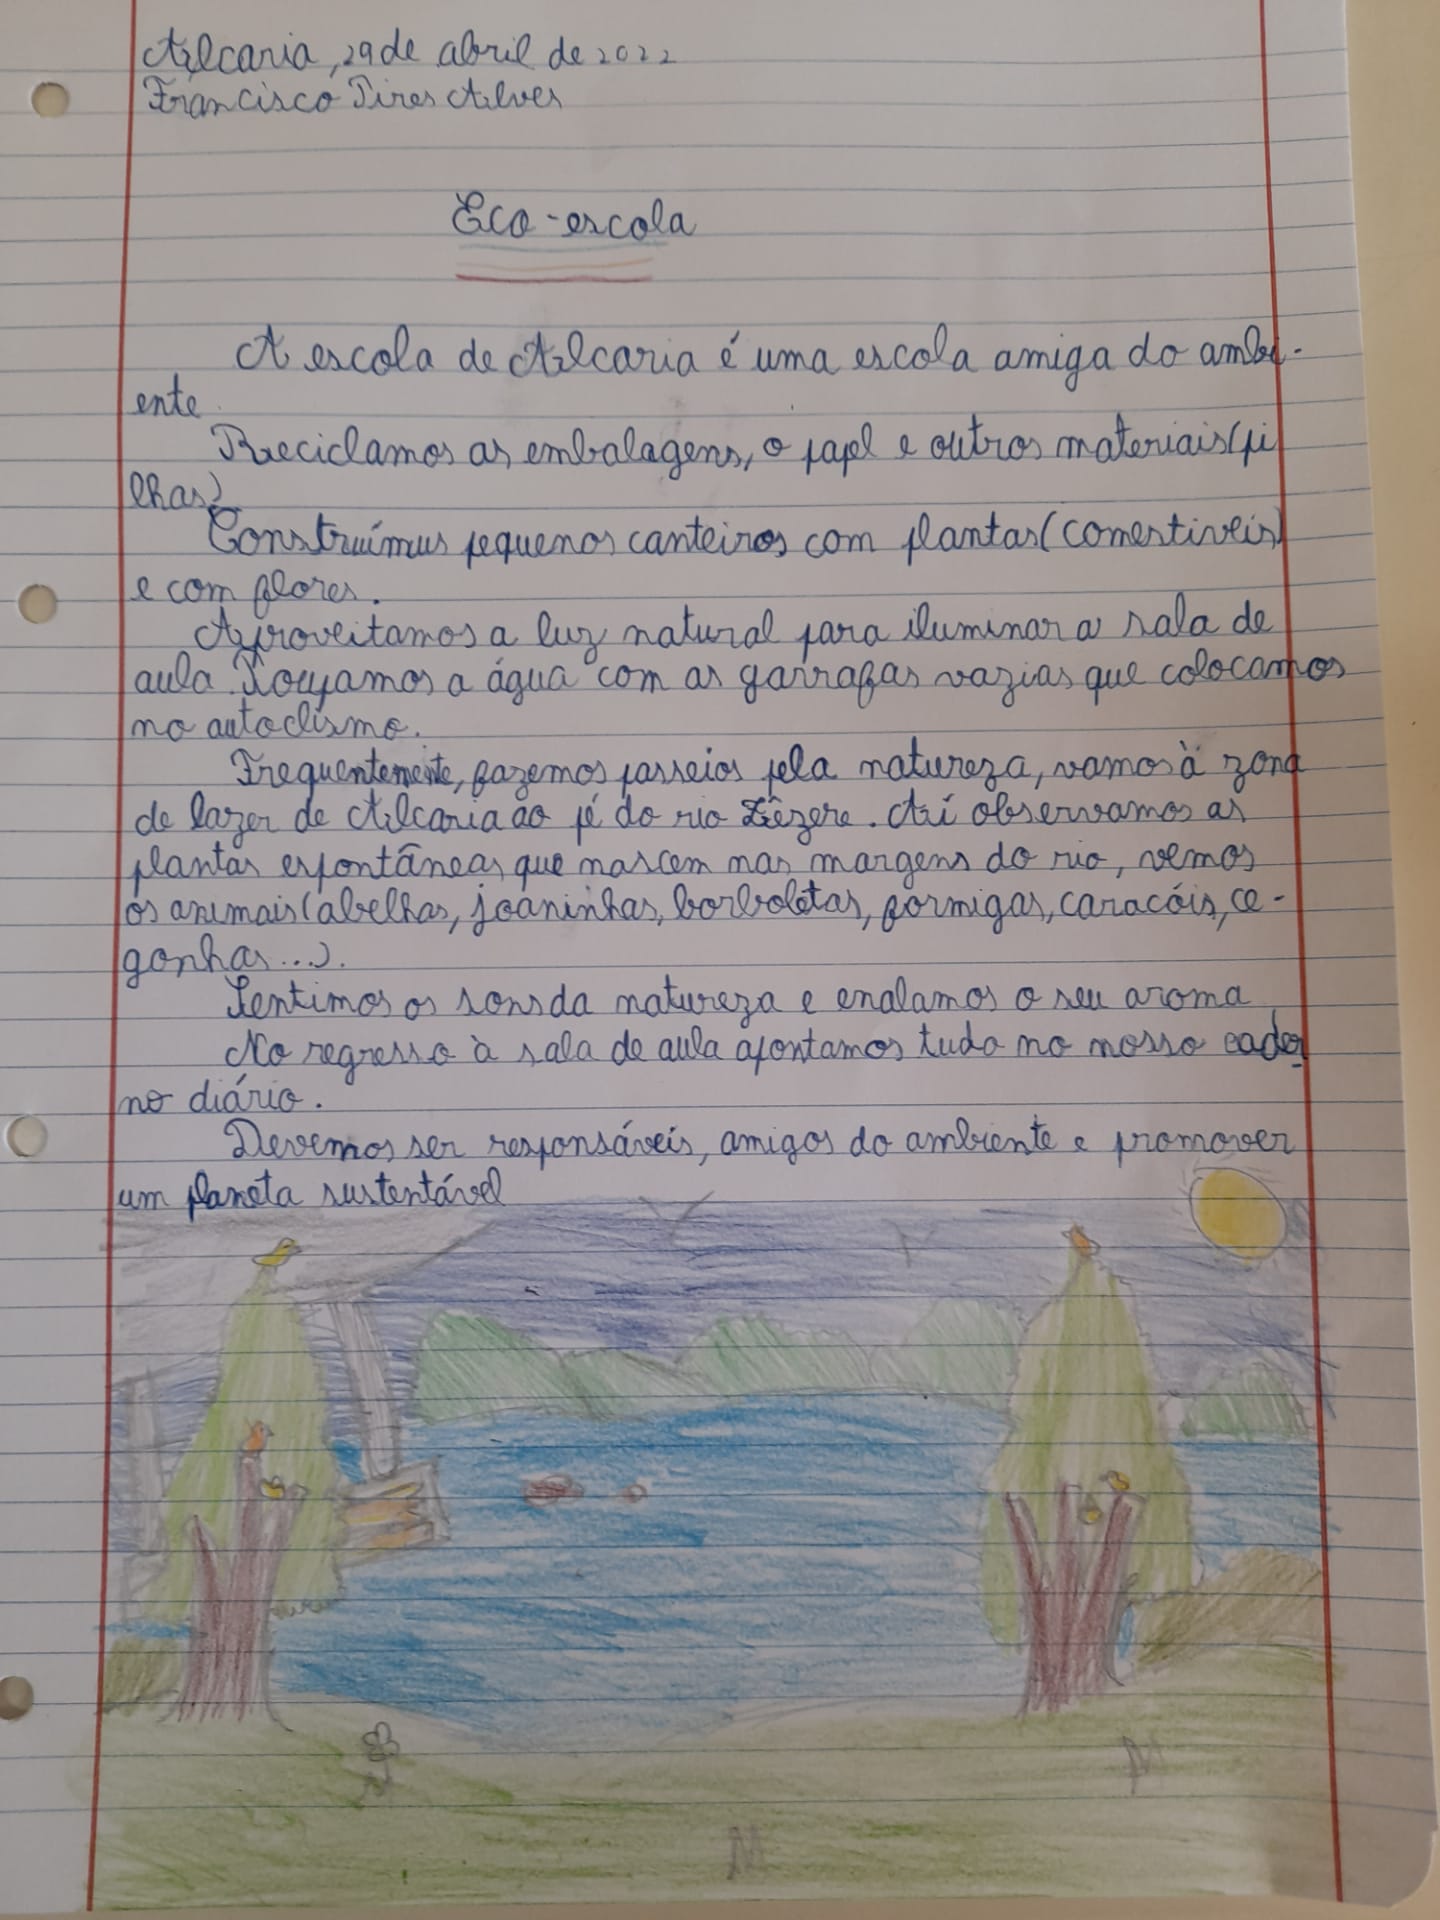 Alcaria, 29 de abril de 2022
Francisco Pires Alves
Eco-escola
A escola de Alcaria é uma escola amiga do ambi-
ente
Reciclamos as embalagens, o papel e outros materiais (pi
lhas)
Construímus pequenos canteiros com plantas (comestiveis)
e com flores.
Aproveitamos a luz natural para iluminar a sala de
aula. Poupamos a água com as garrafas vazias que colocamos
no autoclismo.
Frequentemente, fazemos passeios pela natureza, vamos à zona
de lazer de Alcaria ao pé do rio Zêzere. Aí observamos as
plantas espontâneas que nascem nas margens do rio, vemos
os animais (abelhas, joaninhas, borboletas, formigas, caracóis, ce-
gonhas...).
Sentimos os sons da natureza e enalamos o seu aroma
No regresso à sala de aula apontamos tudo no nosso cader
no diário.
Devemos ser responsáveis, amigos do ambiente e promover
um planeta sustentável